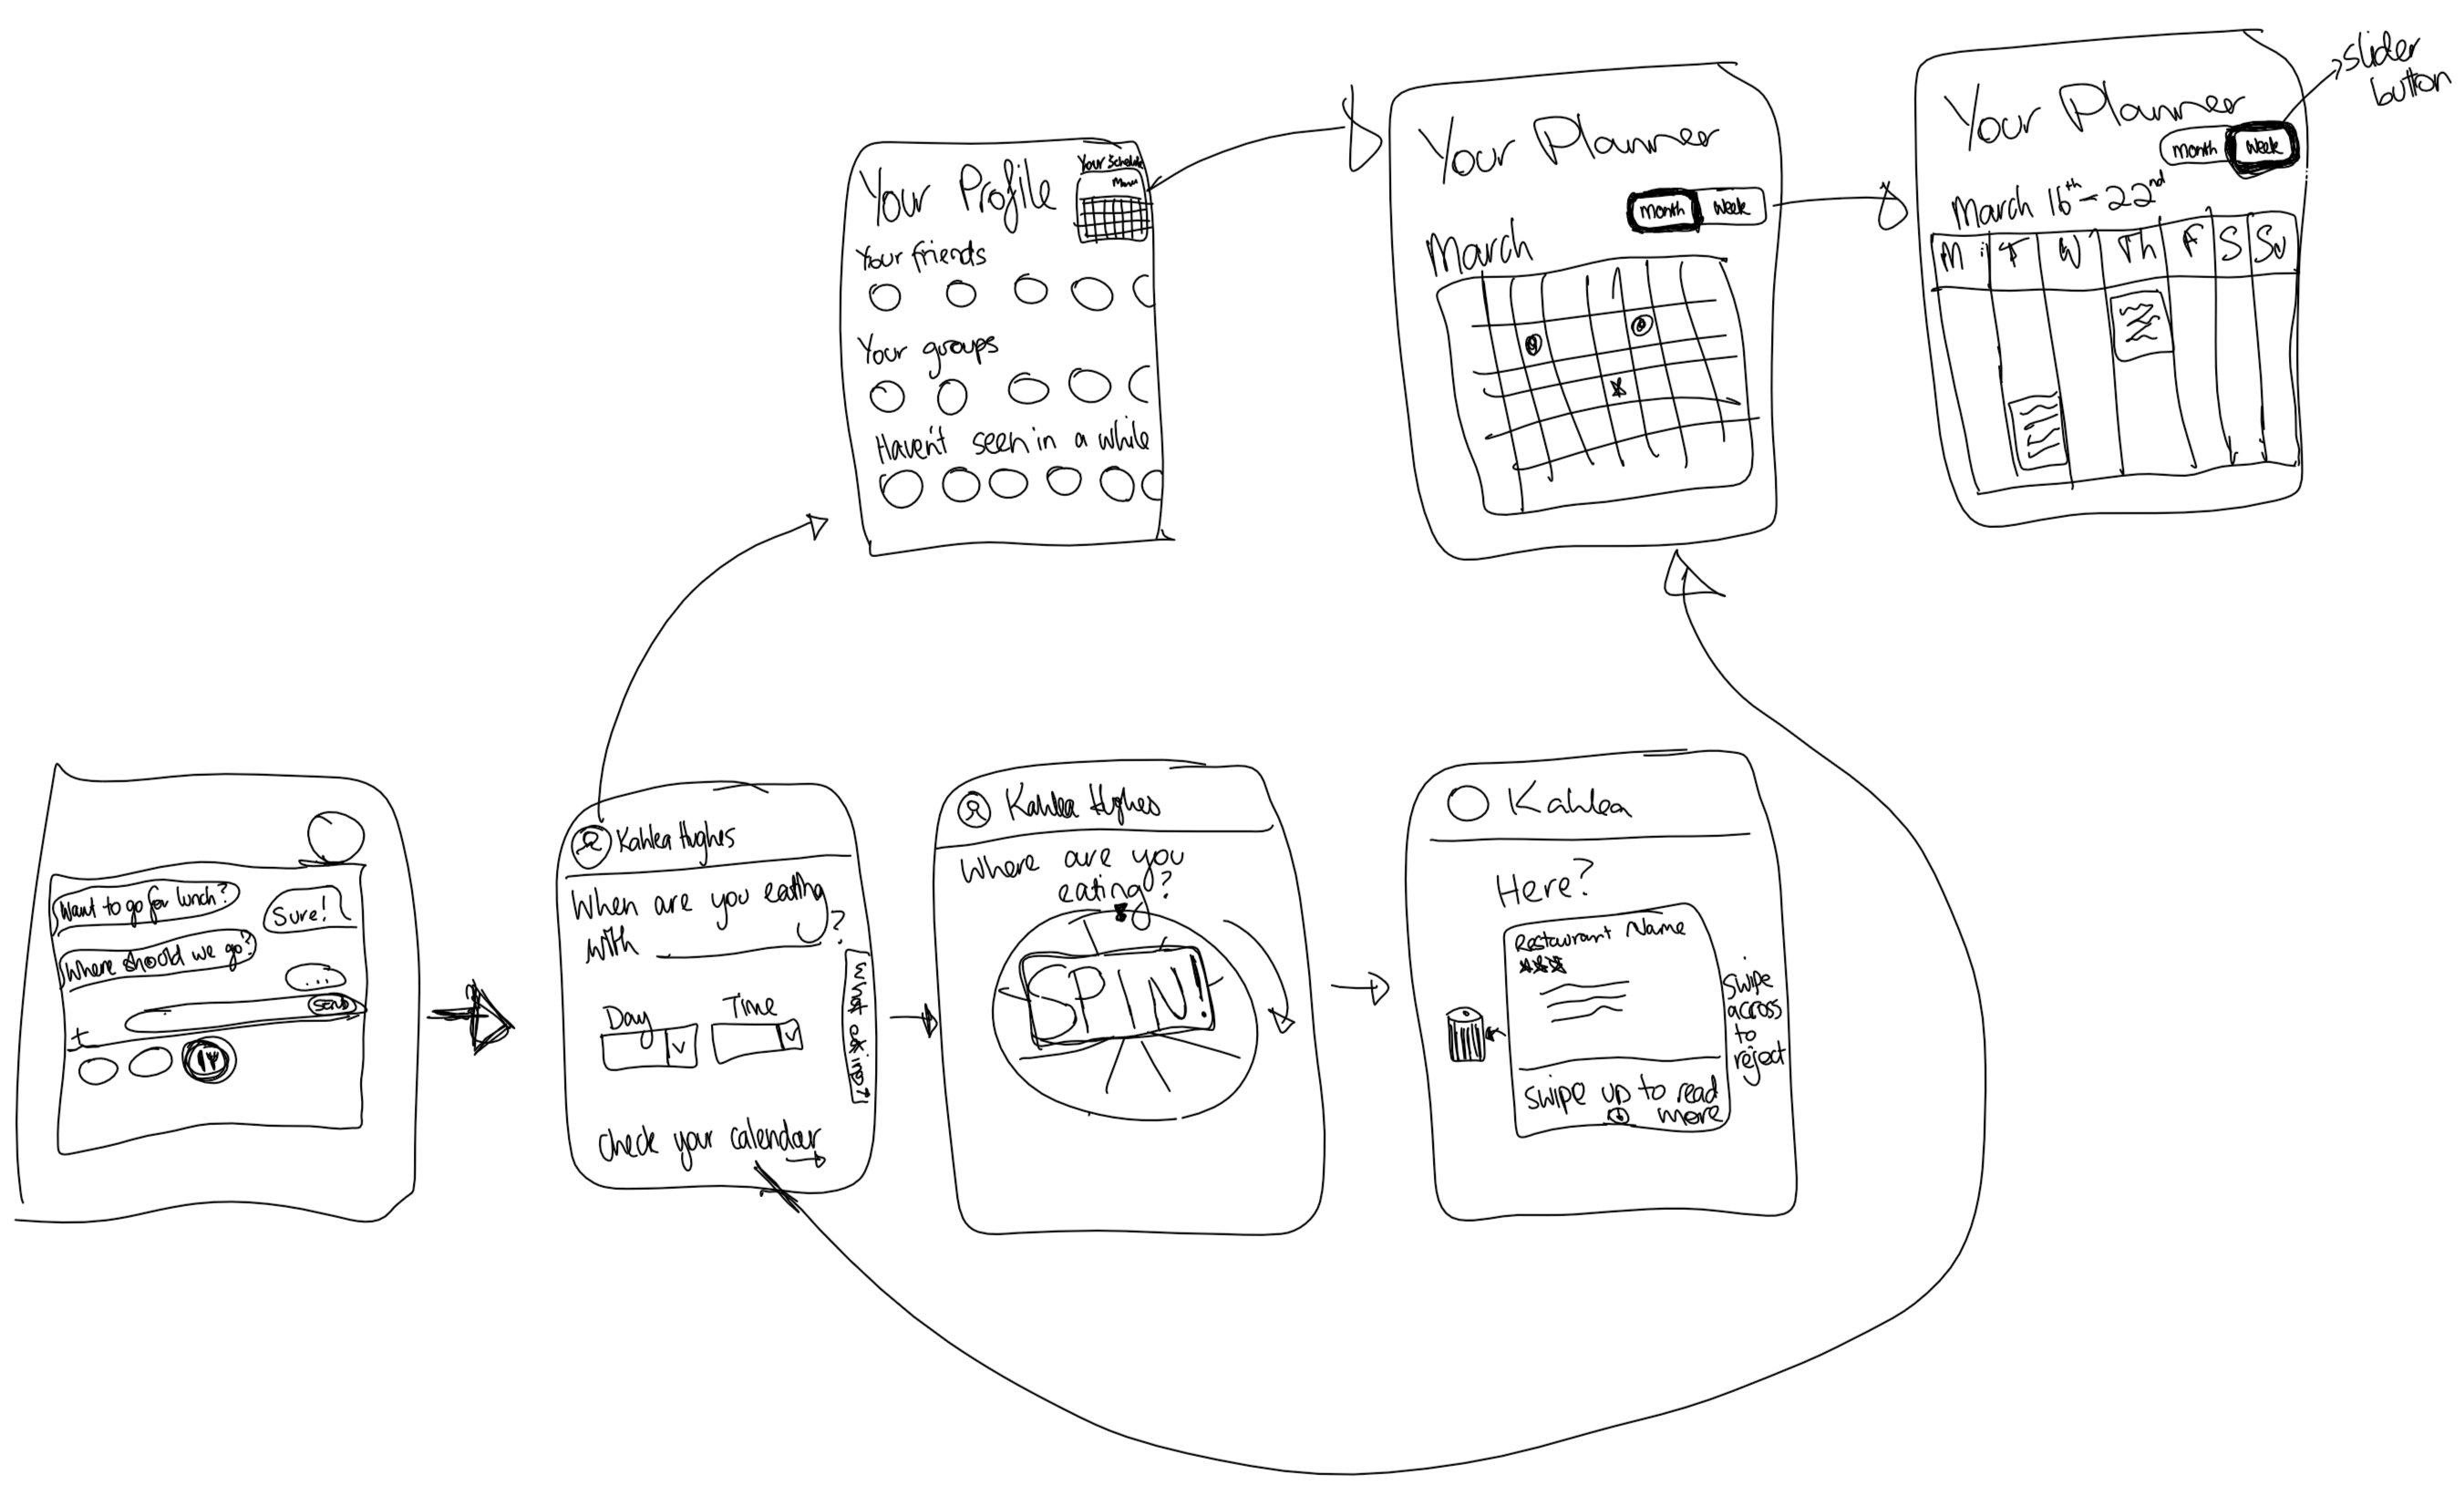 Your Profile
Your Schedule
Your friends
Your groups
Haven't seen in a while
Your Planner
month
Week
March
Your Planner
month
Week
slider
button
March 16th - 22nd
M
T
W
Th
F
S
Su
Want to go for lunch?
Sure!
Where should we go?
...
send
+
Kahlea Hughes
When are you eating
with ?
Day
Time
V
V
Check your calendar
Kahlea Hughes
Where are you
eating?
SPIN!
Kahlea
Here?
Restaurant Name
Swipe
across
to
reject
Swipe up to read
more